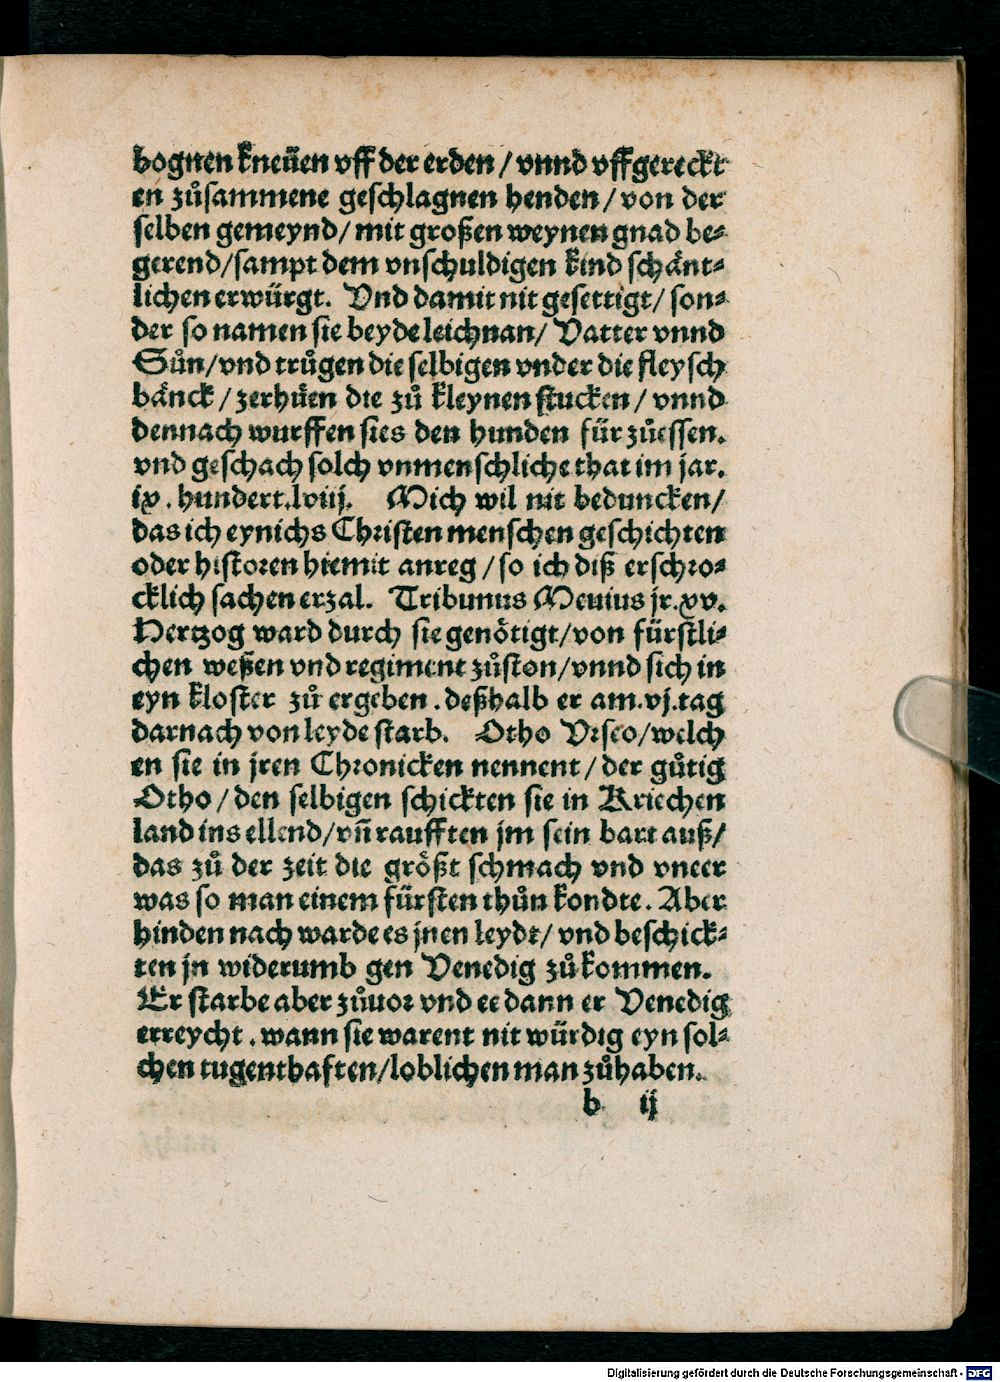 bognen kneüen vff der erden / vnnd vffgereckt
en zůsammene geschlagnen henden / von der
selben gemeynd / mit großen weynen gnad be⸗
gerend / sampt dem vnschuldigen kind schänt⸗
lichen erwürgt. Vnd damit nit gesettigt / son⸗
der so namen sie beyde leichnan / Vatter vnnd
Sůn / vnd trůgen die selbigen vnder die fleysch
bänck / zerhüen die zů kleynen stucken / vnnd
dennach wurffen sies den hunden für zůessen.
vnd geschach solch vnmenschliche that im jar.
ix. hundert. lviij. Mich wil nit beduncken /
das ich eynichs Christen menschen geschichten
oder historen hiemit anreg / so ich diß erschro⸗
cklich sachen erzal. Tribunus Meuius jr. xv.
Hertzog ward durch sie genötigt / von fürstli⸗
chen weßen vnd regiment zůston / vnnd sich in
eyn kloster zů ergeben. deßhalb er am. vj. tag
darnach von leyde starb. Otho Vrseo / welch
en sie in jren Chronicken nennent / der gůtig
Otho / den selbigen schickten sie in Kriechen
land ins ellend / vñ raufften jm sein bart auß /
das zů der zeit die größt schmach vnd vneer
was so man einem fürsten thůn kondte. Aber
hinden nach warde es jnen leydt / vnd beschick⸗
ten jn widerumb gen Venedig zů kommen.
Er starbe aber zůuor vnd ee dann er Venedig
erreycht. wann sie warent nit würdig eyn sol⸗
chen tugenthaften / loblichen man zůhaben.
b ij
Digitalisierung gefördert durch die Deutsche Forschungsgemeinschaft - DFG